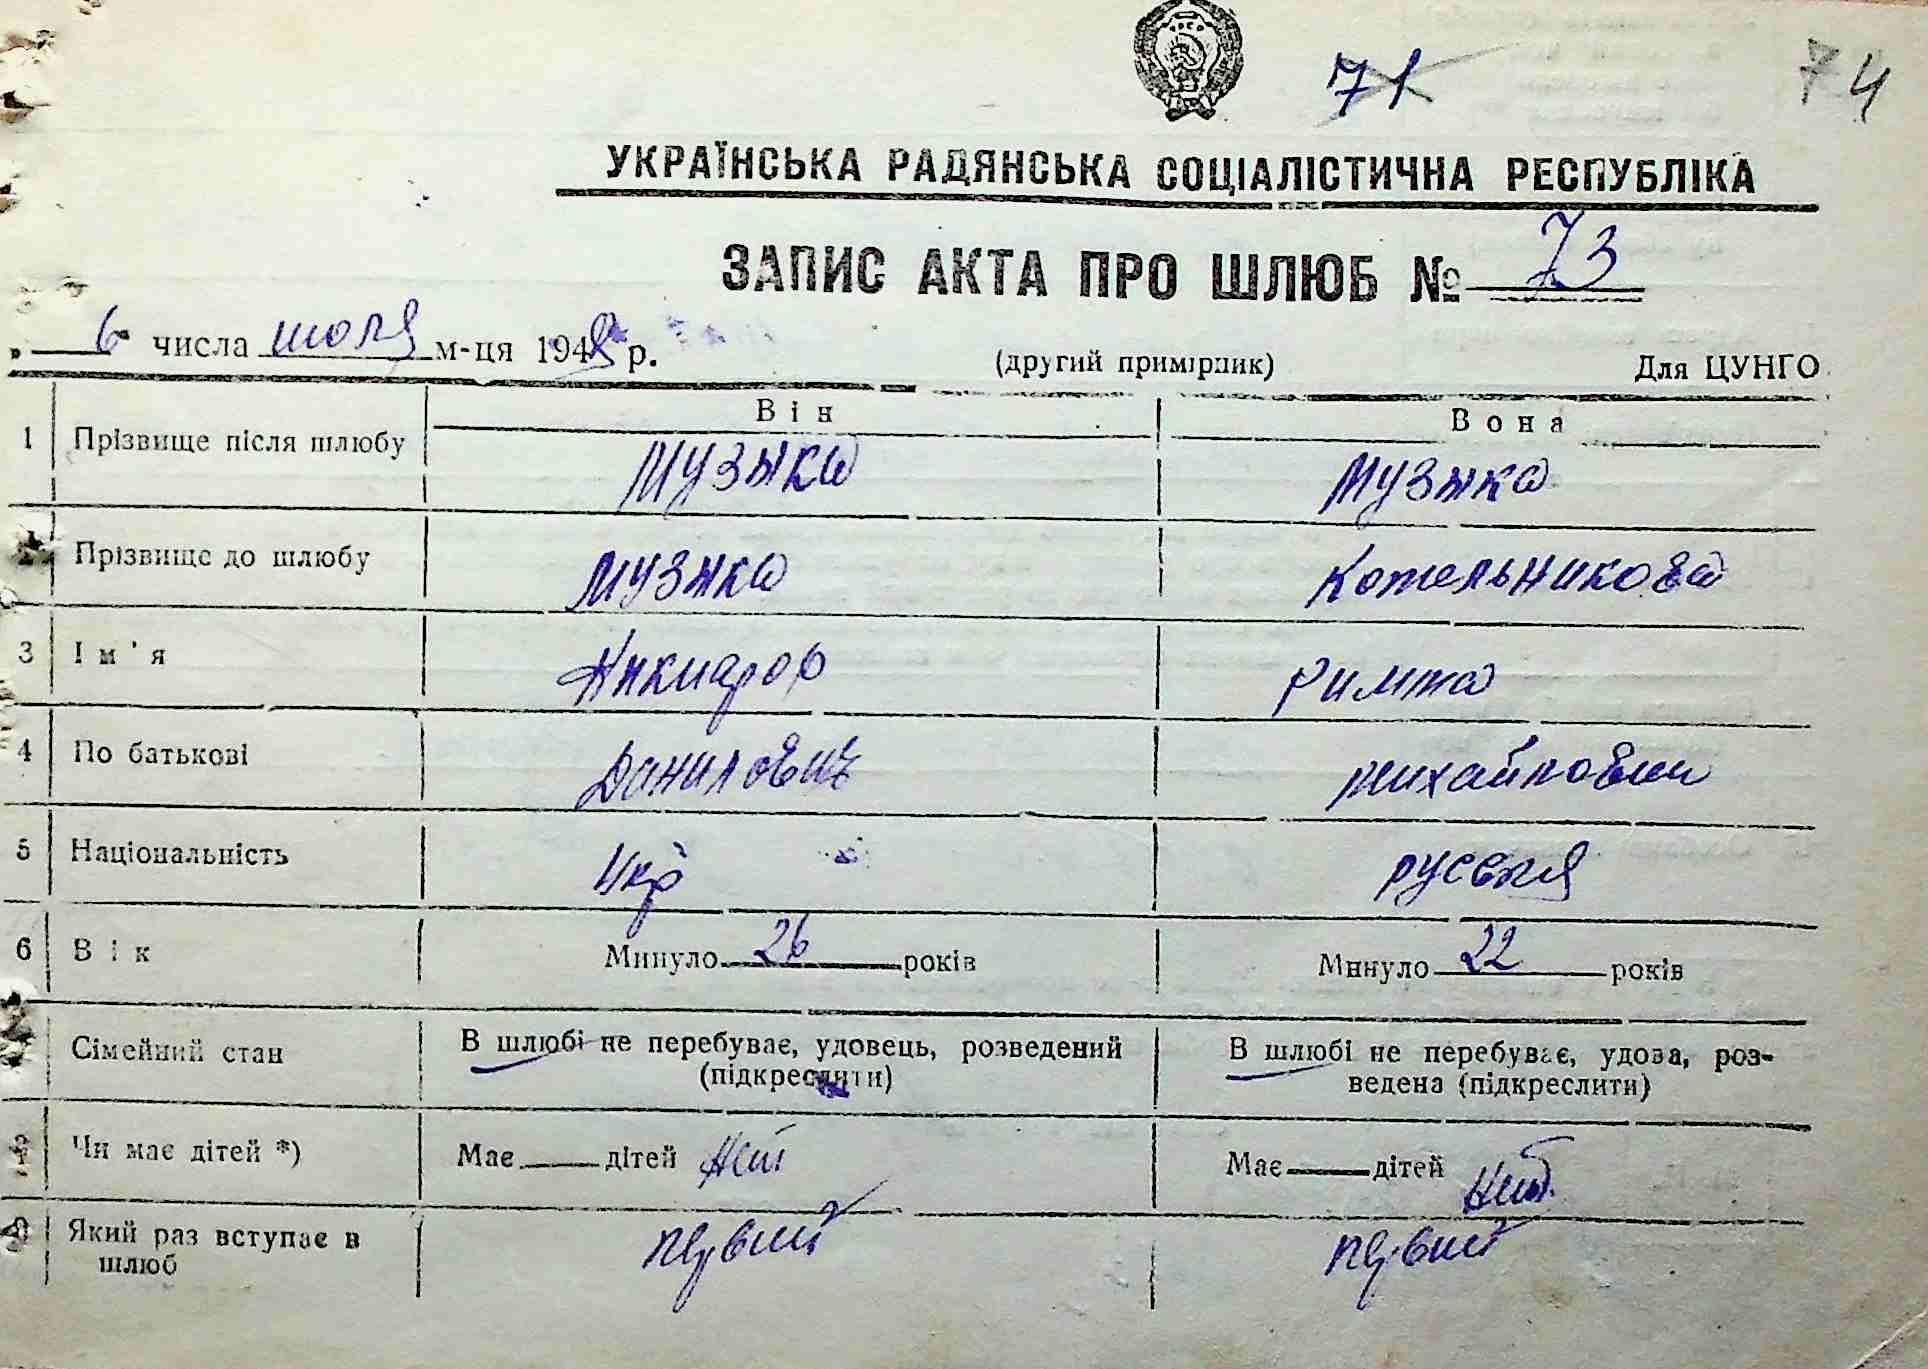 71 74
УКРАЇНСЬКА РАДЯНСЬКА СОЦІАЛІСТИЧНА РЕСПУБЛІКА
ЗАПИС АКТА ПРО ШЛЮБ № 73
„ 6 числа июля м-ця 194 р. (другий примірник) Для ЦУНГО
Він Вона
1 Прізвище після шлюбу Музыка Музыка
Прізвище до шлюбу Музыка Котельникова
3 Ім'я Никифор Римма
4 По батькові Данилович Михайловна
5 Національність Укр русская
6 Вік Минуло 26 років Минуло 22 років
Сімейний стан В шлюбі не перебуває, удовець, розведений (підкреслити) В шлюбі не перебуває, удова, роз-
ведена (підкреслити)
Чи має дітей *) Має дітей нет Має дітей нет.
Який раз вступає в шлюб первый первый